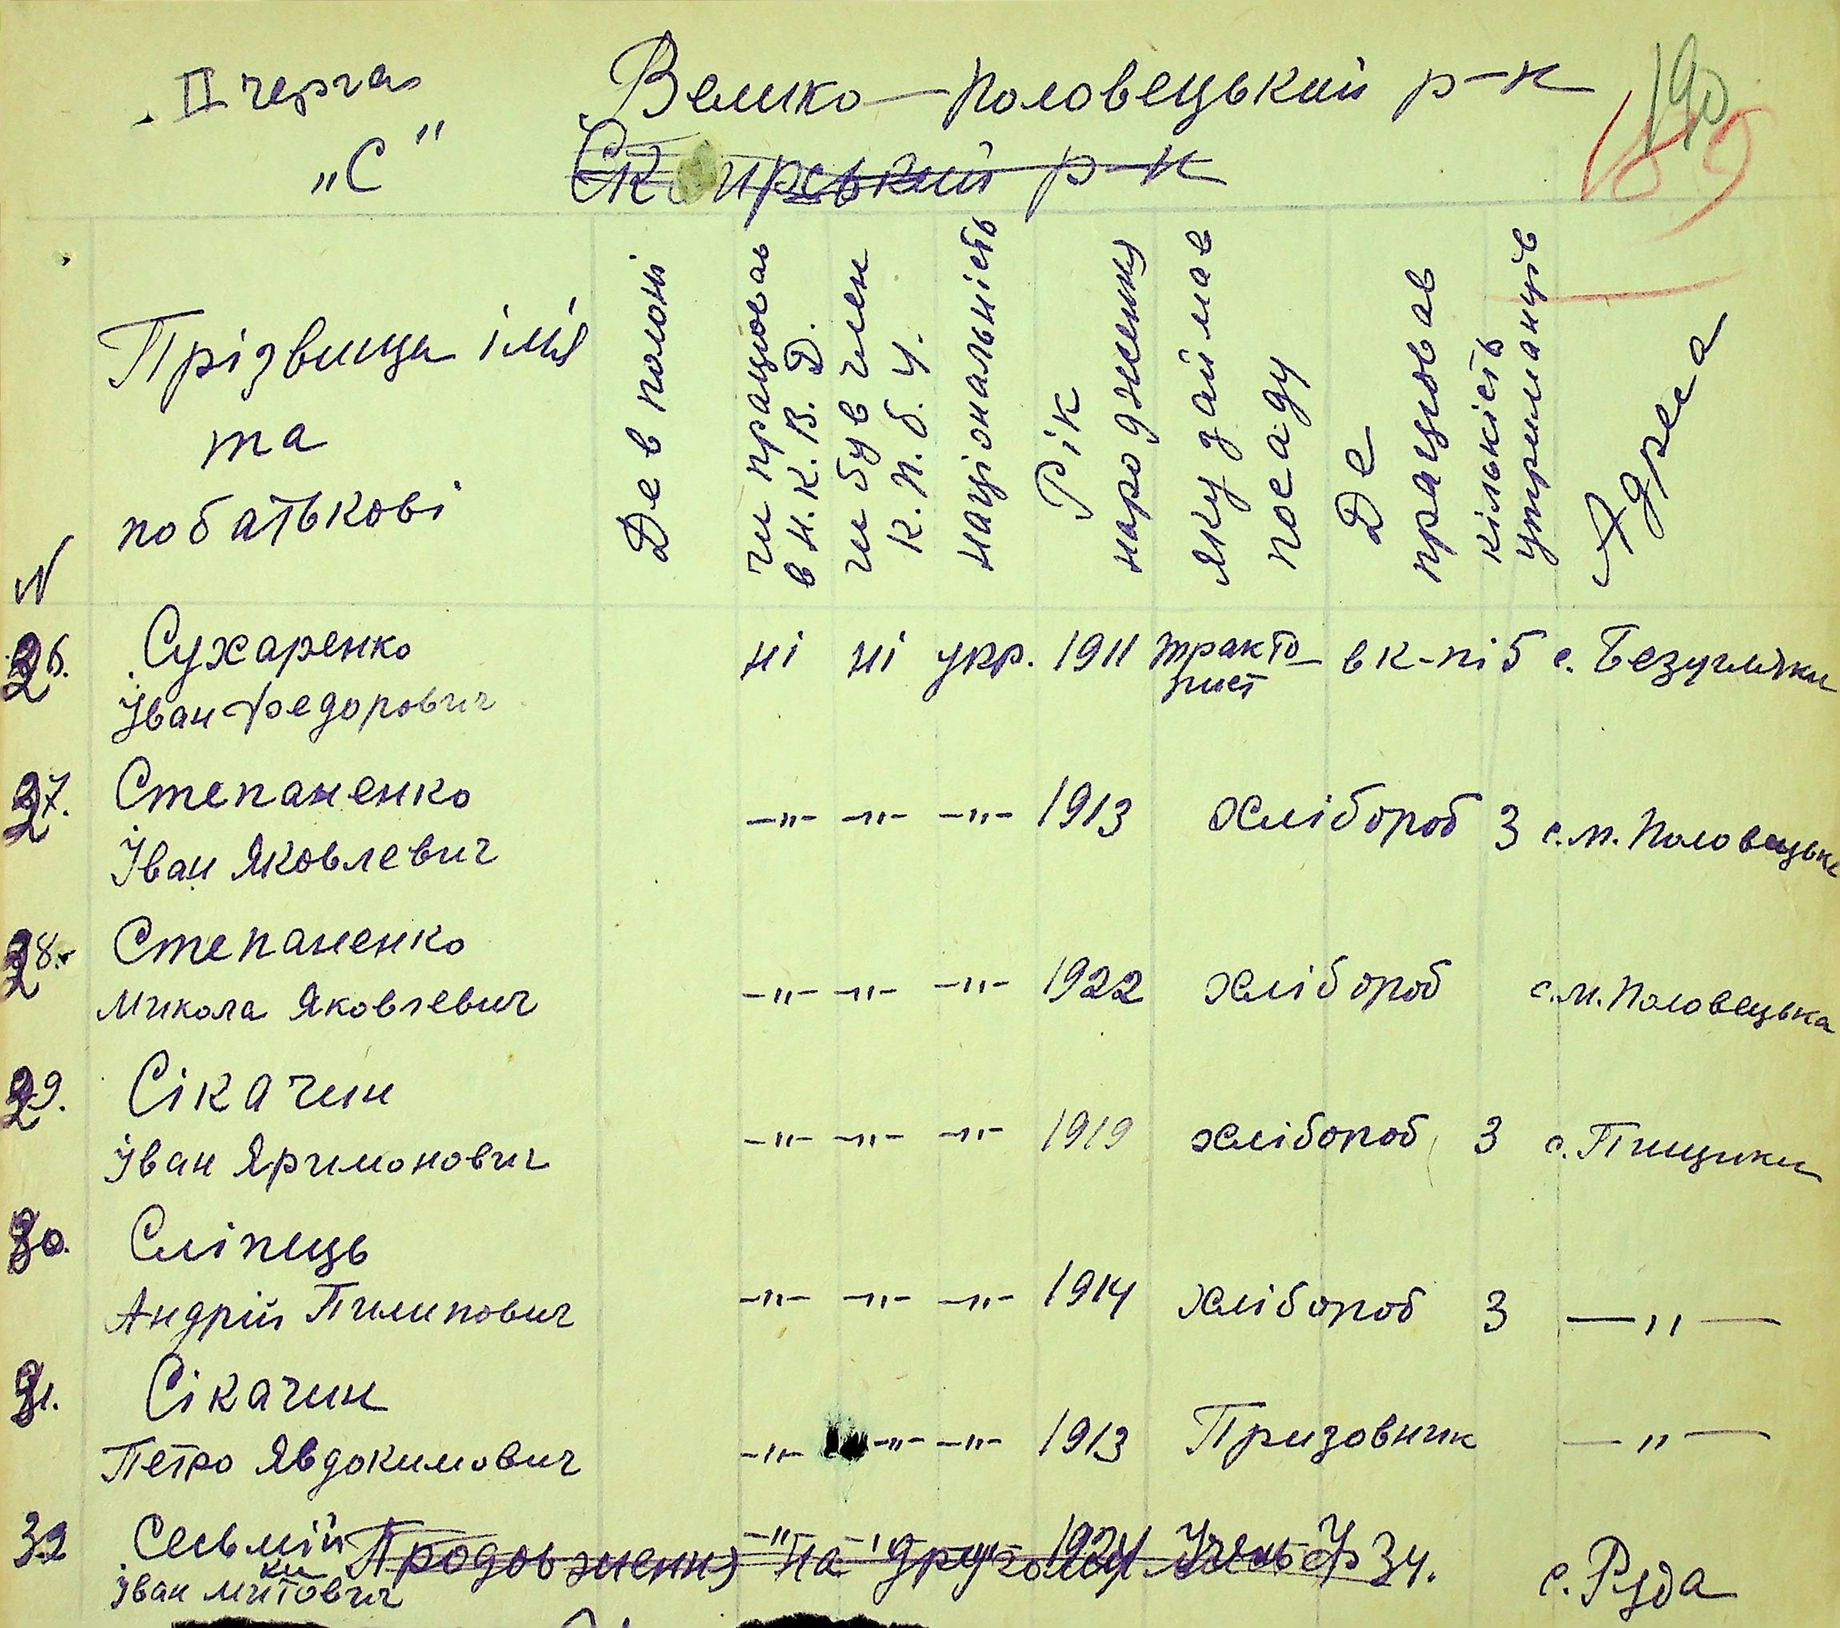 II черга Велико-Половецький р-н 190
„С" Сквирський р-н 189
N Прізвище імя та побатькові
Де в полоні
чи працював в Н.К.В.Д.
чи був член К.П.б.У.
Національність
Рік народження
яку займав посаду
Де працював
кількість утриманців
Адреса
26. Сухаренко ні ні укр. 1911 тракто- в к-пі 5 с. Безугляки
Іван Федорович рист
27. Степаненко
Іван Яковлевич -"- -"- -"- 1913 хлібороб 3 с. М. Половецьке
28. Степаненко
Микола Яковлевич -"- -"- -"- 1922 хлібороб с. М. Половецька
29. Сікачин
Іван Яримонович -"- -"- -"- 1919 хлібороб 3 с. Пищики
30. Сліпець
Андрій Пилипович -"- -"- -"- 1914 хлібороб 3 -"-
31. Сікачин
Петро Явдокимович -"- -"- -"- 1913 Призовник -"-
32 Сесьмій Продовження на 1924 с. Руда
Іван Микитович